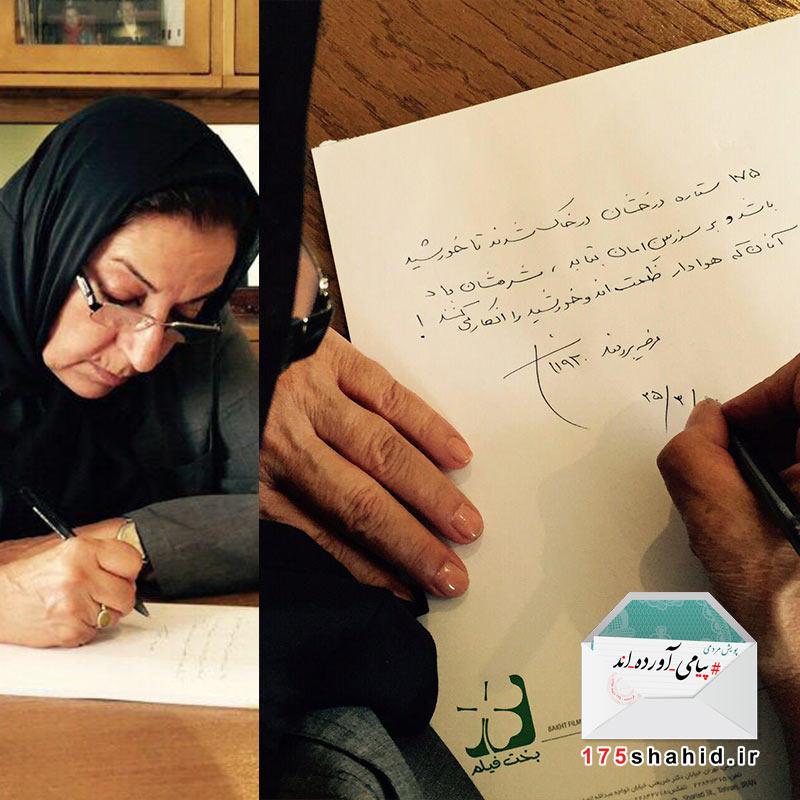 ۱۷۵ ستاره درخشان در خاک شدند تا خورشید
باشد و بر سرزمین امان بتابد ، شرمشان باد
آنان که هوادار ظلمت اند و خورشید را انکار می کنند !
مرضیه برومند
۲۵/۳/
بخت فیلم
BAKHT FILM
پویش مردمی
#پیامی_آورده_اند
175shahid.ir